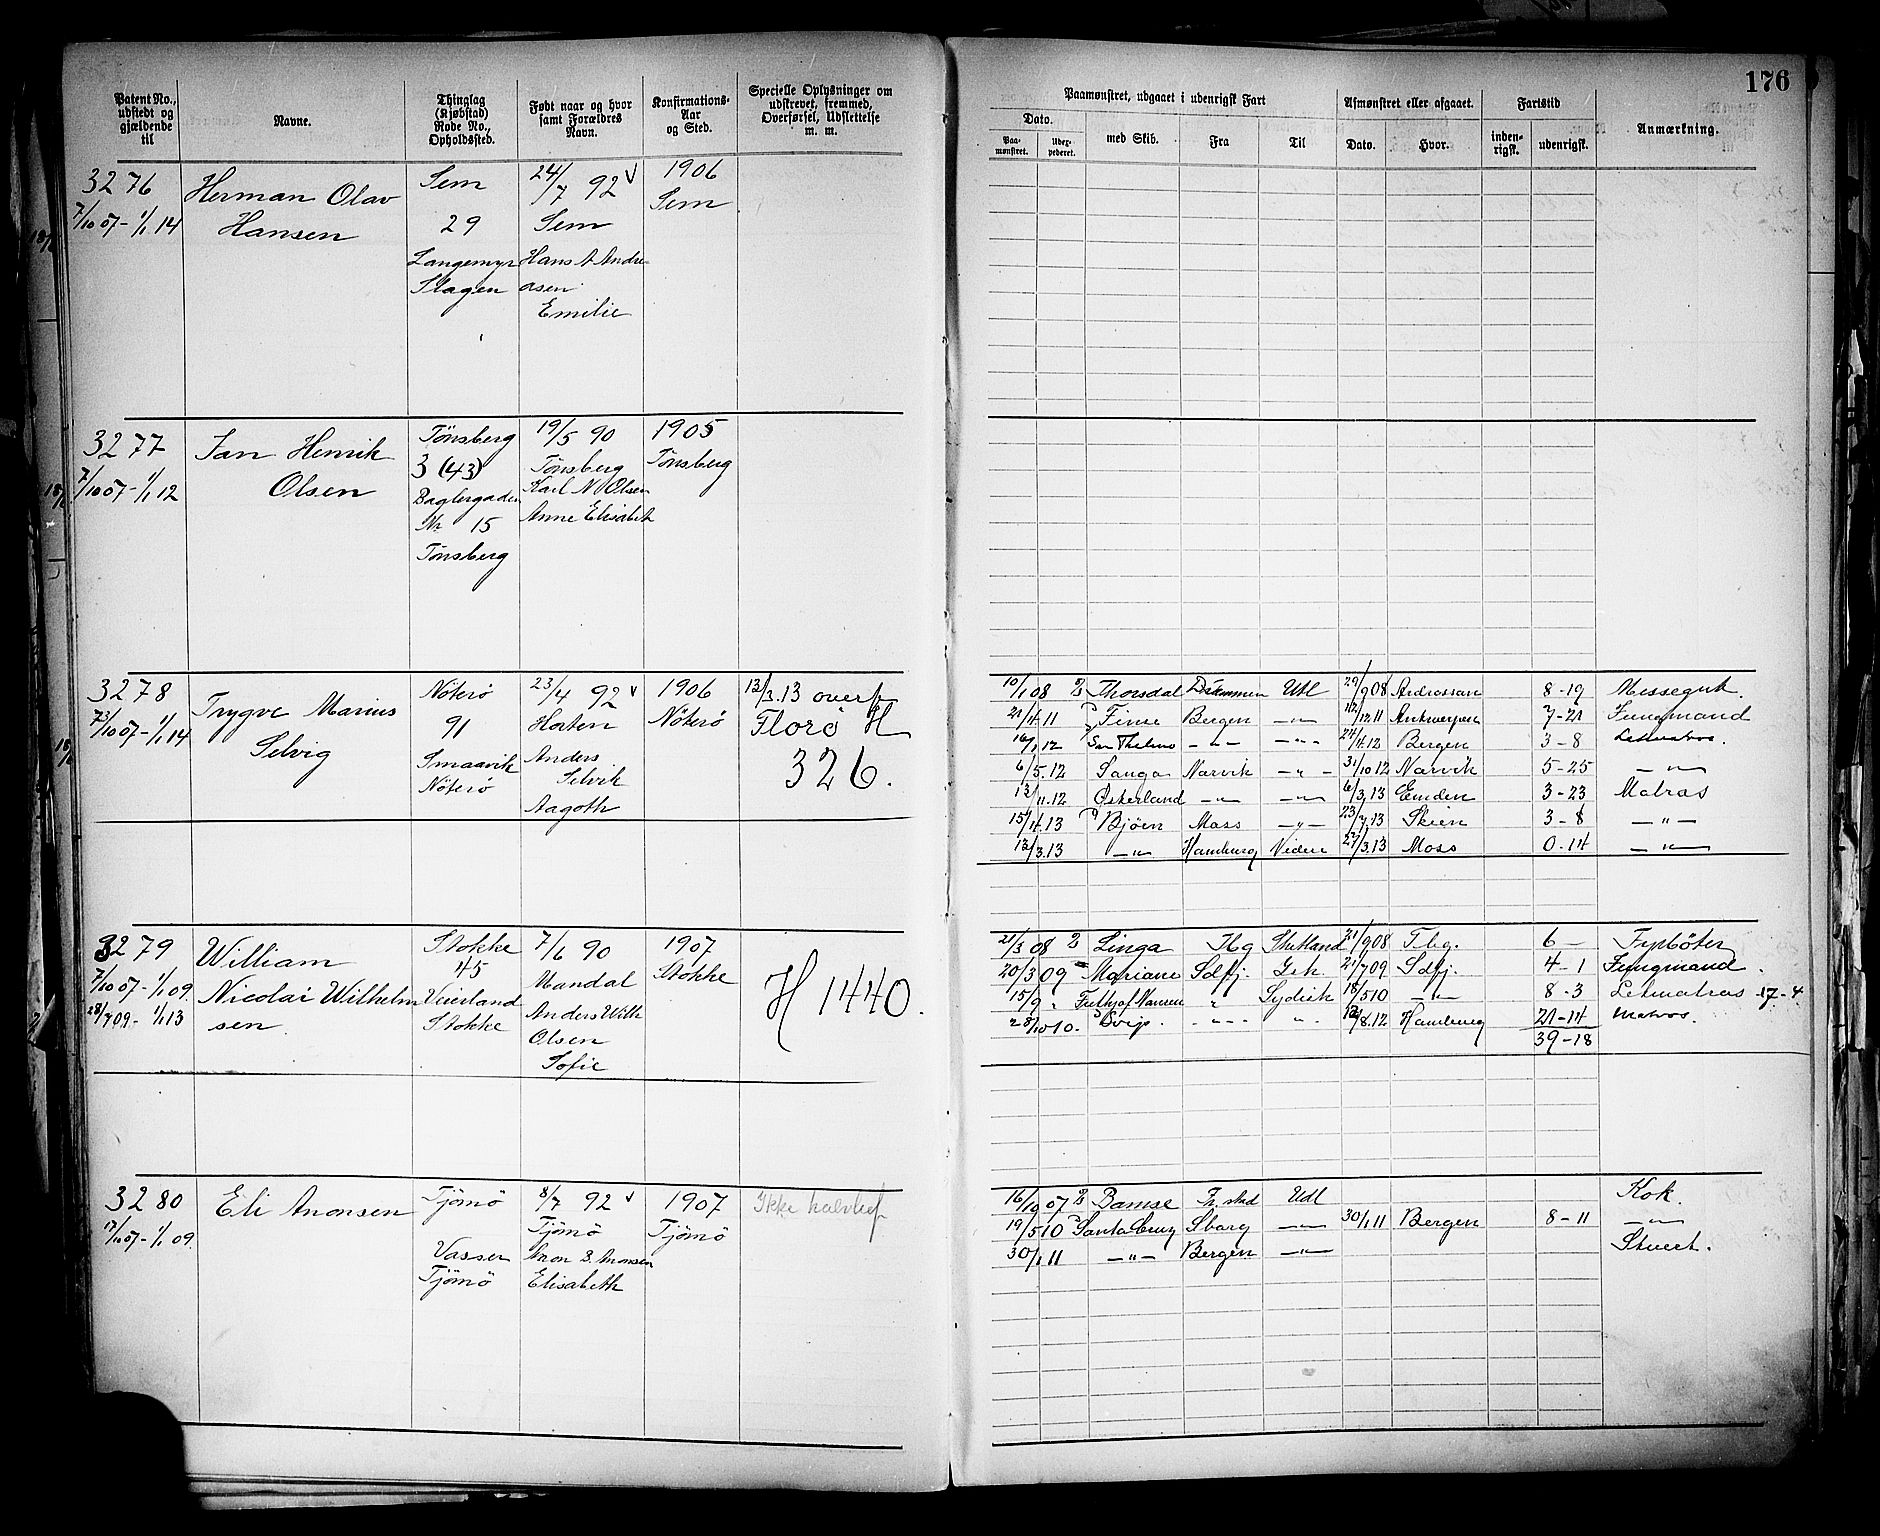 176
Patent No., udstedt og gjældende til
Navne.
Thinglag (Kjøbstad) Rode No., Opholdssted.
Født naar og hvor samt Forældres Navn.
Konfirmations- Aar og Sted.
Specielle Oplysninger om udskrevet, fremmed, Overførsel, Udslettelse m. m.
Paamønstret, udgaaet i udenrigsk Fart
Afmønstret eller afgaaet.
Fartstid
Anmærkning.
Dato.
Paa- mønstret.
med Skib.
Fra
Til
Dato.
Hvor.
inden- rigsk.
udenrigsk.
3276
7/10 07 - 1/1 14
Herman Olav
Hansen
Sem
29
Langemyr
Slagen
24/7 92 v
Sem
Hans A Andre-
asen
Emilie
1906
Sem
3277
7/10 07 - 1/1 12
Jan Henrik
Olsen
Tönsberg
3 (43)
Baglergaden
Nr 15
Tönsberg
19/5 90
Tönsberg
Karl N Olsen
Anne Elisabeth
1905
Tönsberg
3278
07 - 1/1 14
Trygve Marius
Selvig
Nöterö
91
Smaavik
Nöterö
23/4 92 v
Horten
Anders
Selvik
Aagoth
1906
Nöterö
12/3.13 overf
Florö H
326.
10/1 08 Thorsdal Drammen Udl 29/9 08 Ardrossan 8-19 Messegut.
21/4 11 Finse Bergen -"- 12/12 11 Antwerpen 7-21 Jungmand
16/1 12 San Thelmo -"- -"- 24/4.12 Bergen 3-8 Letmatros.
6/5.12 Sanga Narvik -"- 31/10 12 Narvik 5-25 -"-
12/11.12 Østerland -"- -"- 6/3.13 Emden 3-23 Matros
15/4.13 Bjöen Moss -"- 23/7.13 Skien 3-8 -"-
12/3.13 -"- Hamburg Viden 27/3.13 Moss 0-14 -"-
3279
7/10 07 - 1/1 09.
28/7 09 - 1/1 13
William
Nicolai Wilhelm
sen.
Stokke
45
Veierland
Stokke
7/6 90
Mandal
Anders Wilh
Olsen
Sofie
1907
Stokke
H 1440.
21/3 08 Linga Tbg Shetland 21/9 08 Tbg. 6 - Fyrböter
20/3 09 Mariane Sdfj. Ish 21/7 09 Sdfj. 4-1 Jungmand.
15/9 " Fridtjof Nansen " Sydish 18/5 10 -"- 8-3 Letmatros 17-4
28/10 10. Svip. -"- " /8.12 Hamburg 21-14 Matros.
39-18
3280
07 - 1/1 09.
Eli Anonsen
Tjömö
Vasser
Tjömö
8/7 92 v
Tjömö
Anon B. Anonsen
Elisabeth
1907
Tjömö
Ikke
16/ 07 Bamse Fr.stad Udl Kok.
19/5 10 Santa Cruz Sbarg -"- 30/1 11 Bergen 8-11 -"-
30/1 11 -"- Bergen -"- Stuert.